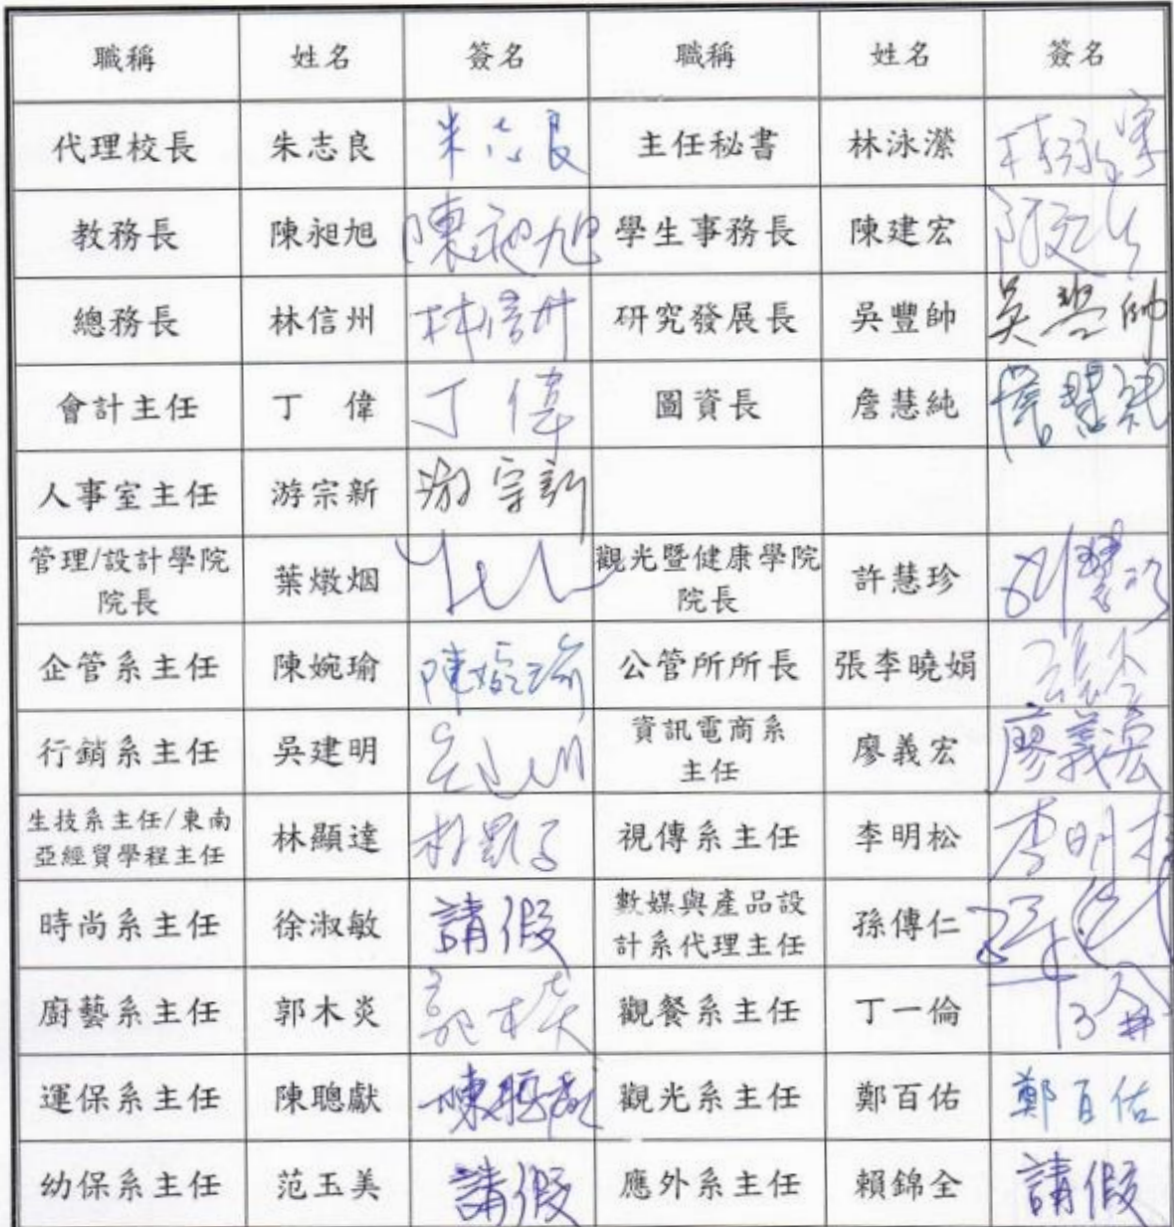 職稱 姓名 簽名 職稱 姓名 簽名
代理校長 朱志良 朱志良 主任秘書 林泳瀠 林泳瀠
教務長 陳昶旭 陳昶旭 學生事務長 陳建宏
總務長 林信州 林信州 研究發展長 吳豐帥 吳豐帥
會計主任 丁 偉 丁 偉 圖資長 詹慧純 詹慧純
人事室主任 游宗新 游宗新
管理/設計學院
院長 葉燉烟 觀光暨健康學院
院長 許慧珍
企管系主任 陳婉瑜 陳婉瑜 公管所所長 張李曉娟
行銷系主任 吳建明 資訊電商系
主任 廖義宏 廖義宏
生技系主任/東南
亞經貿學程主任 林顯達 視傳系主任 李明松 李明松
時尚系主任 徐淑敏 請假 數媒與產品設
計系代理主任 孫傳仁
廚藝系主任 郭木炎 郭木炎 觀餐系主任 丁一倫
運保系主任 陳聰獻 陳聰獻 觀光系主任 鄭百佑 鄭百佑
幼保系主任 范玉美 請假 應外系主任 賴錦全 請假